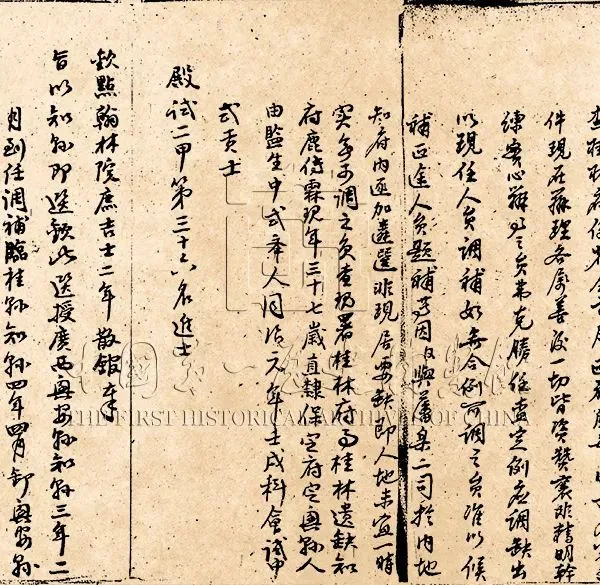 件現在辦理各屬善後一切皆資贊襄非精明幹
練實心辦事之員弗克勝任查定例應調缺出
以現任人員調補如無合例可調之員准以候
補正途人員題補等因臣與藩臬二司於內地
知府內逐加遴選非現居要缺即人地未宜一時
實無可調之員查現署桂林府事桂林遺缺知
府鹿傳霖現年三十七歲直隸保定府定興縣人
由監生中式舉人同治元年壬戌科會試中
式貢士
殿試二甲第三十六名進士
欽點翰林院庶吉士二年散館奉
旨以知縣即選欽此選授廣西興安縣知縣三年二
月到任調補臨桂縣知縣四年四月卸興安縣
中国第一历史档案馆
THE FIRST HISTORICAL ARCHIVES OF CHINA